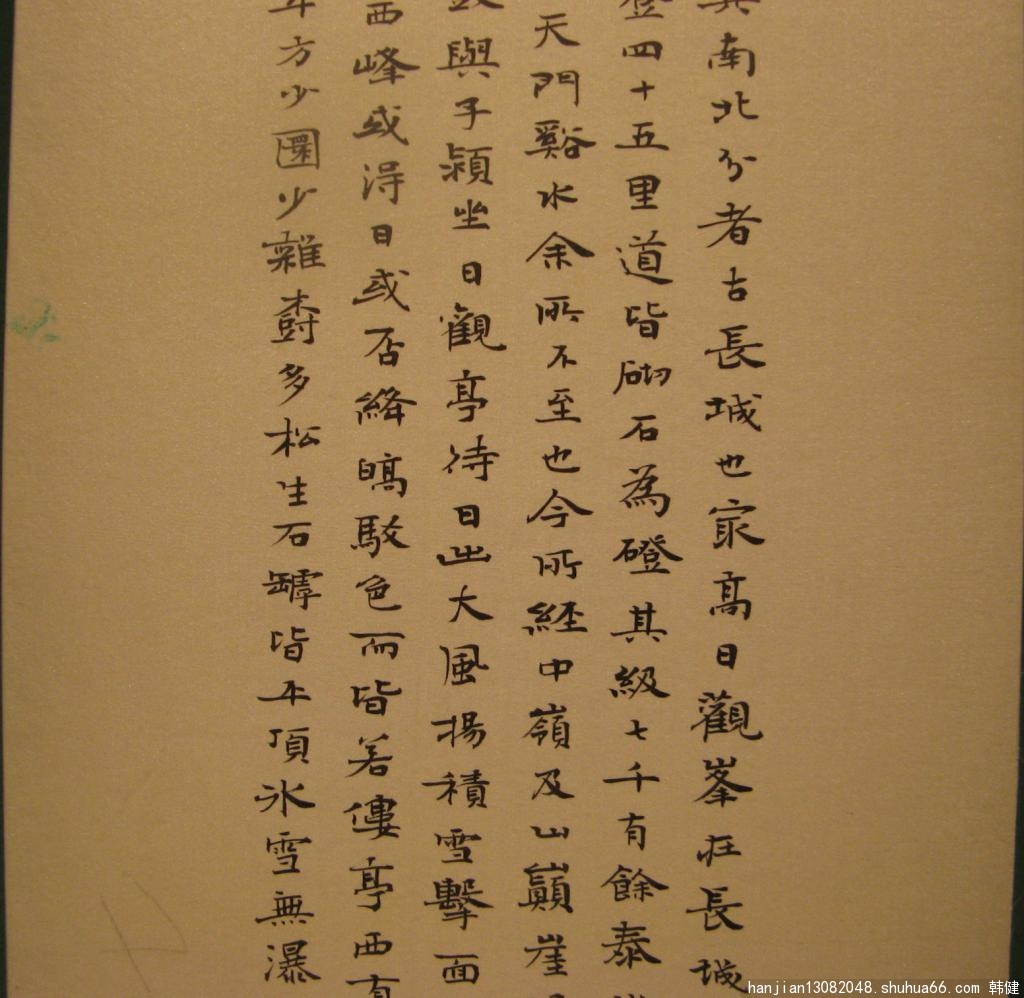 其南北分者古長城也最高日觀峯在長城
登四十五里道皆砌石為磴其級七千有餘泰
天門谿水余所不至也今所經中嶺及山巔崖
與子潁坐日觀亭待日出大風揚積雪擊面
西峰或得日或否絳皜駁色而皆若僂亭西有
平方少圜少雜樹多松生石罅皆平頂冰雪無瀑
hanjian13082048.shuhua66.com 韩健